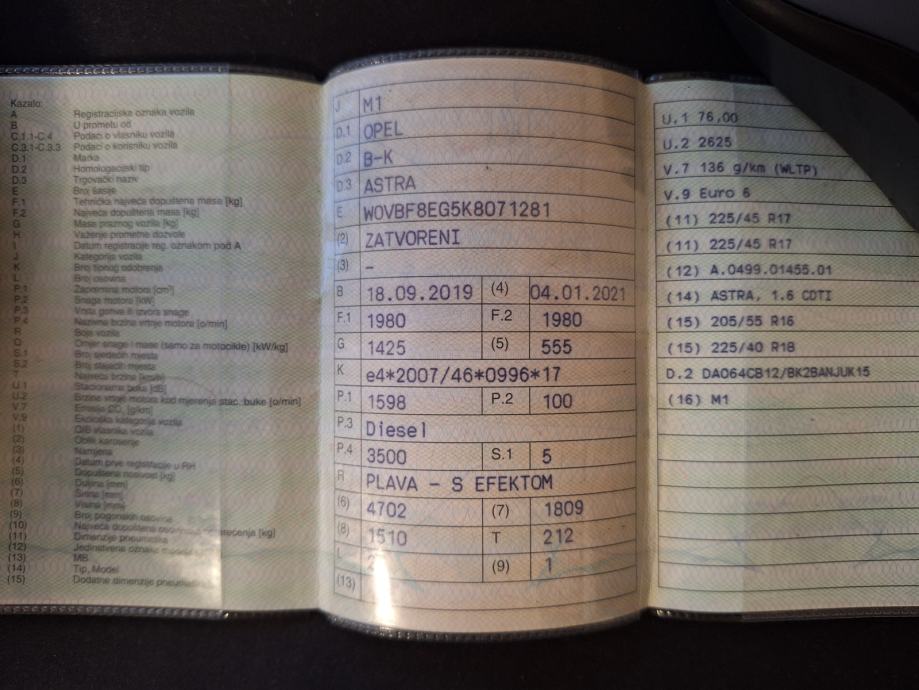 Kazalo:
A Registracijska oznaka vozila
B U prometu od
C.1.1-C.4 Podaci o vlasniku vozila
C.3.1-C.3.3 Podaci o korisniku vozila
D.1 Marka
D.2 Homologacijski tip
D.3 Trgovački naziv
E Broj šasije
F.1 Tehnička najveća dopuštena masa [kg]
F.2 Najveća dopuštena masa [kg]
G Masa praznog vozila [kg]
H Važenje prometne dozvole
I Datum registracije reg. oznakom pod A
J Kategorija vozila
K Broj tipnog odobrenja
L Broj osovina
P.1 Zapremina motora [cm³]
P.2 Snaga motora [kW]
P.3 Vrsta goriva ili izvora snage
P.4 Nazivna brzina vrtnje motora [o/min]
R Boja vozila
Q Omjer snage i mase (samo za motocikle) [kW/kg]
S.1 Broj sjedećih mjesta
S.2 Broj stajaćih mjesta
T Najveća brzina [km/h]
U.1 Stacionarna buka [dB]
U.2 Brzina vrtnje motora kod mjerenja stac. buke [o/min]
V.7 Emisija CO₂ [g/km]
V.9 Ekološka kategorija vozila
(1) OIB vlasnika vozila
(2) Oblik karoserije
(3) Namjena
(4) Datum prve registracije u RH
(5) Dopuštena nosivost [kg]
(6) Duljina [mm]
(7) Širina [mm]
(8) Visina [mm]
(9) Broj pogonskih osovina
(10) Najveća dopuštena [kg]
(11) Dimenzije pneumatika
(12) Jedinstvena oznaka
(13) MB
(14) Tip, Model
(15) Dodatne dimenzije pneumatika
J M1
D.1 OPEL
D.2 B-K
D.3 ASTRA
E W0VBF8EG5K8071281
(2) ZATVORENI
(3) -
B 18.09.2019 (4) 04.01.2021
F.1 1980 F.2 1980
G 1425 (5) 555
K e4*2007/46*0996*17
P.1 1598 P.2 100
P.3 Diesel
P.4 3500 S.1 5
R PLAVA - S EFEKTOM
(6) 4702 (7) 1809
(8) 1510 T 212
L 2 (9) 1
(13)
U.1 76,00
U.2 2625
V.7 136 g/km (WLTP)
V.9 Euro 6
(11) 225/45 R17
(11) 225/45 R17
(12) A.0499.01455.01
(14) ASTRA, 1.6 CDTI
(15) 205/55 R16
(15) 225/40 R18
D.2 DA064CB12/BK2BANJUK15
(16) M1